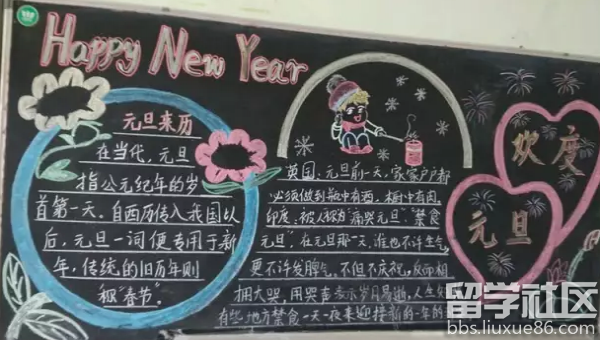 Happy New Year
元旦来历
在当代，元旦
指公元纪年的岁
首第一天。自西历传入我国以
后，元旦一词便专用于新
年，传统的旧历年则
称“春节”。
英国：元旦前一天，家家户户都
必须做到瓶中有酒，橱中有肉。
印度：被人称为“痛哭元旦”“禁食
元旦”，在元旦那一天，谁也不许生气，
更不许发脾气，不但不庆祝，反而相
拥大哭，用哭声表示岁月易逝，人生
有些地方禁食一天一夜来迎接新的一年的
欢度
元旦
留学社区
bbs.liuxue86.com